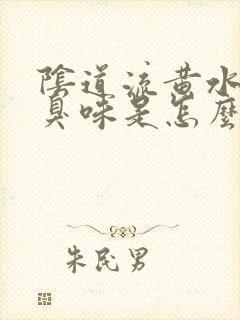 陰道流黃水
臭味是怎麼
朱民男